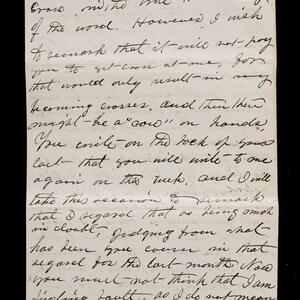 cross, in the
of the word. However, I wish
to remark that it will not pay
you to get cross at me, for
that would only result in my
becoming crosser, and then there
might be a "row" on hands
You write on the back of your
last that you will write to me
again on the week, and I will
take this occasion to remark
that I regard that as being much
in doubt, judging from what
has been your custom in that
regard for the last month. Now
you must not think that I am
finding fault, as I do not mean